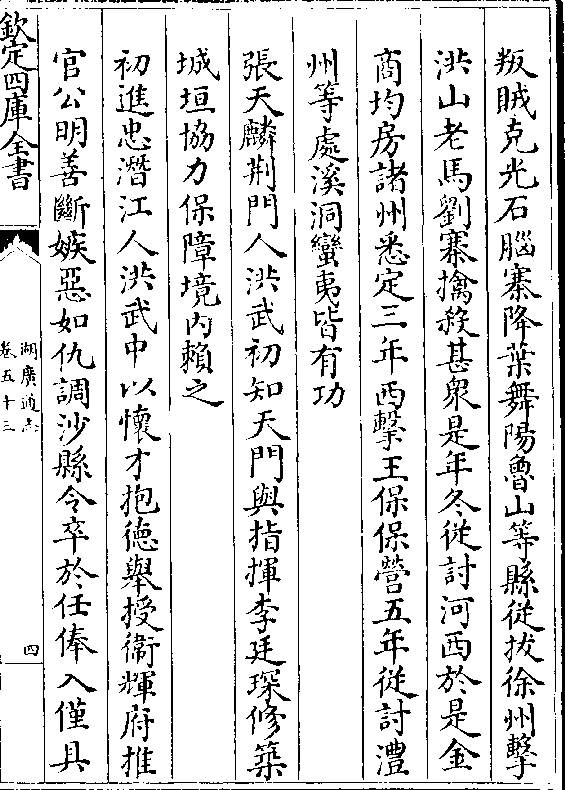 叛賊克光石腦寨降葉舞陽魯山等縣從拔徐州擊
洪山老馬劉寨擒殺甚衆是年冬從討河西於是金
商均房諸州悉定三年西擊王保保營五年從討澧
州等處溪洞蠻夷皆有功
張天麟荆門人洪武初知天門與指揮李廷琛修築
城垣協力保障境内賴之
初進忠潛江人洪武中以懷才抱德舉授衞輝府推
官公明善斷嫉惡如仇調沙縣令卒於任俸入僅具
欽定四庫全書
湖廣通志
卷五十三
四